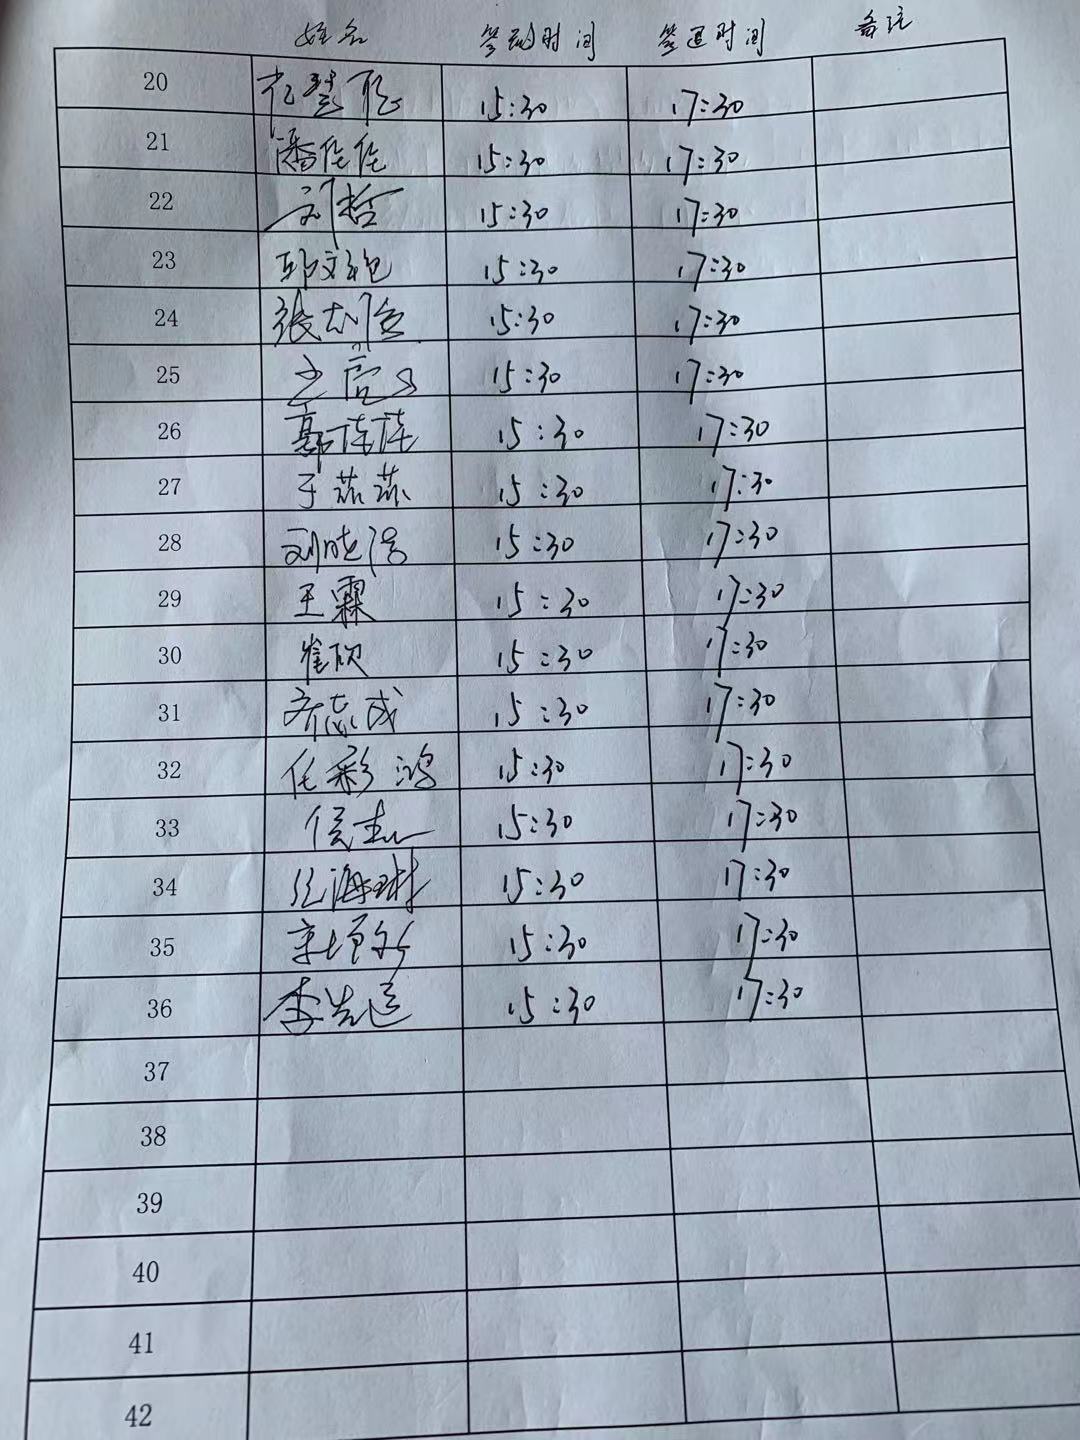 姓名 签到时间 签退时间 备注
20 15:30 17:30
21 潘佳佳 15:30 17:30
22 刘哲 15:30 17:30
23 邱文艳 15:30 17:30
24 张 15:30 17:30
25 15:30 17:30
26 郭 15:30 17:30
27 于蕊蕊 15:30 17:30
28 刘晓 15:30 17:30
29 王霖 15:30 17:30
30 崔欣 15:30 17:30
31 齐志成 15:30 17:30
32 任彩鸿 15:30 17:30
33 侯杰 15:30 17:30
34 海琳 15:30 17:30
35 15:30 17:30
36 李 15:30 17:30
37
38
39
40
41
42